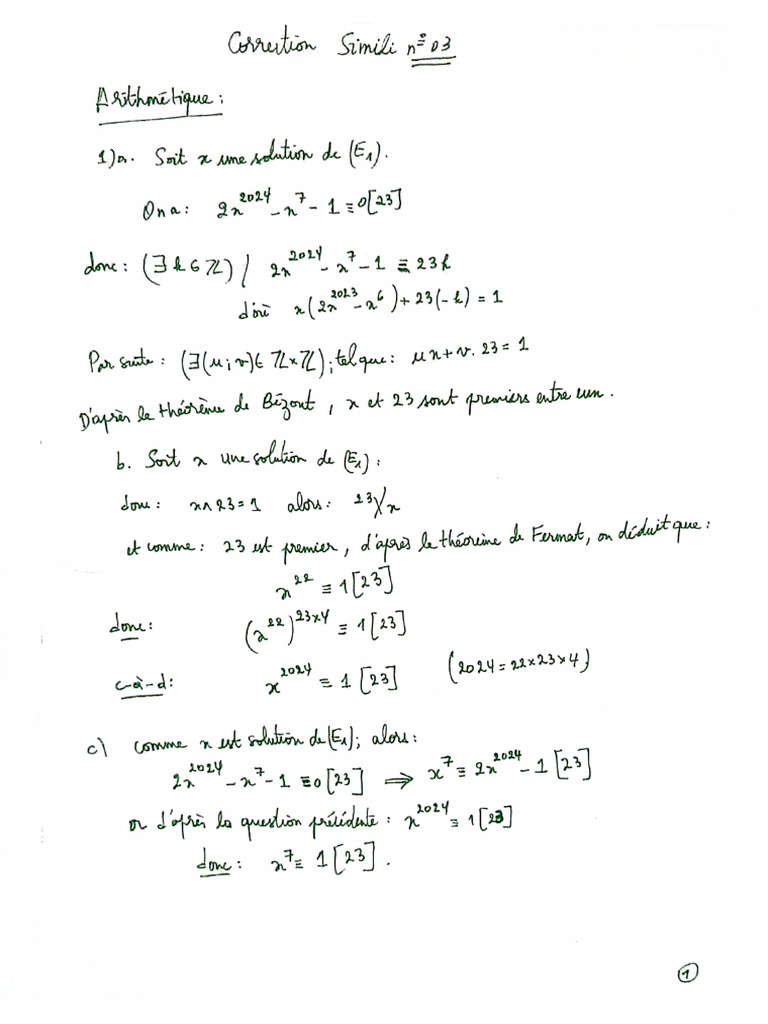 Correction Simili n° 03
Arithmétique :
1) a. Soit x une solution de (E₁).
On a : 2x²⁰²⁴ - x⁷ - 1 ≡ 0[23]
donc : (∃ k ∈ ℤ) / 2x²⁰²⁴ - x⁷ - 1 = 23k
d'où x(2x²⁰²³ - x⁶) + 23(-k) = 1
Par suite : (∃(u; v) ∈ ℤ×ℤ); tel que : ux + v.23 = 1
D'après le théorème de Bézout, x et 23 sont premiers entre eux.
b. Soit x une solution de (E₁) :
donc : x∧23 = 1 alors : 23∤x
et comme : 23 est premier, d'après le théorème de Fermat, on déduit que :
x²² ≡ 1[23]
donc : (x²²)²³ˣ⁴ ≡ 1[23]
c-à-d : x²⁰²⁴ ≡ 1 [23] (2024 = 22×23×4)
c) comme x est solution de (E₁); alors :
2x²⁰²⁴ - x⁷ - 1 ≡ 0 [23] ⟹ x⁷ ≡ 2x²⁰²⁴ - 1 [23]
or d'après la question précédente : x²⁰²⁴ ≡ 1 [23]
donc : x⁷ ≡ 1 [23].
1